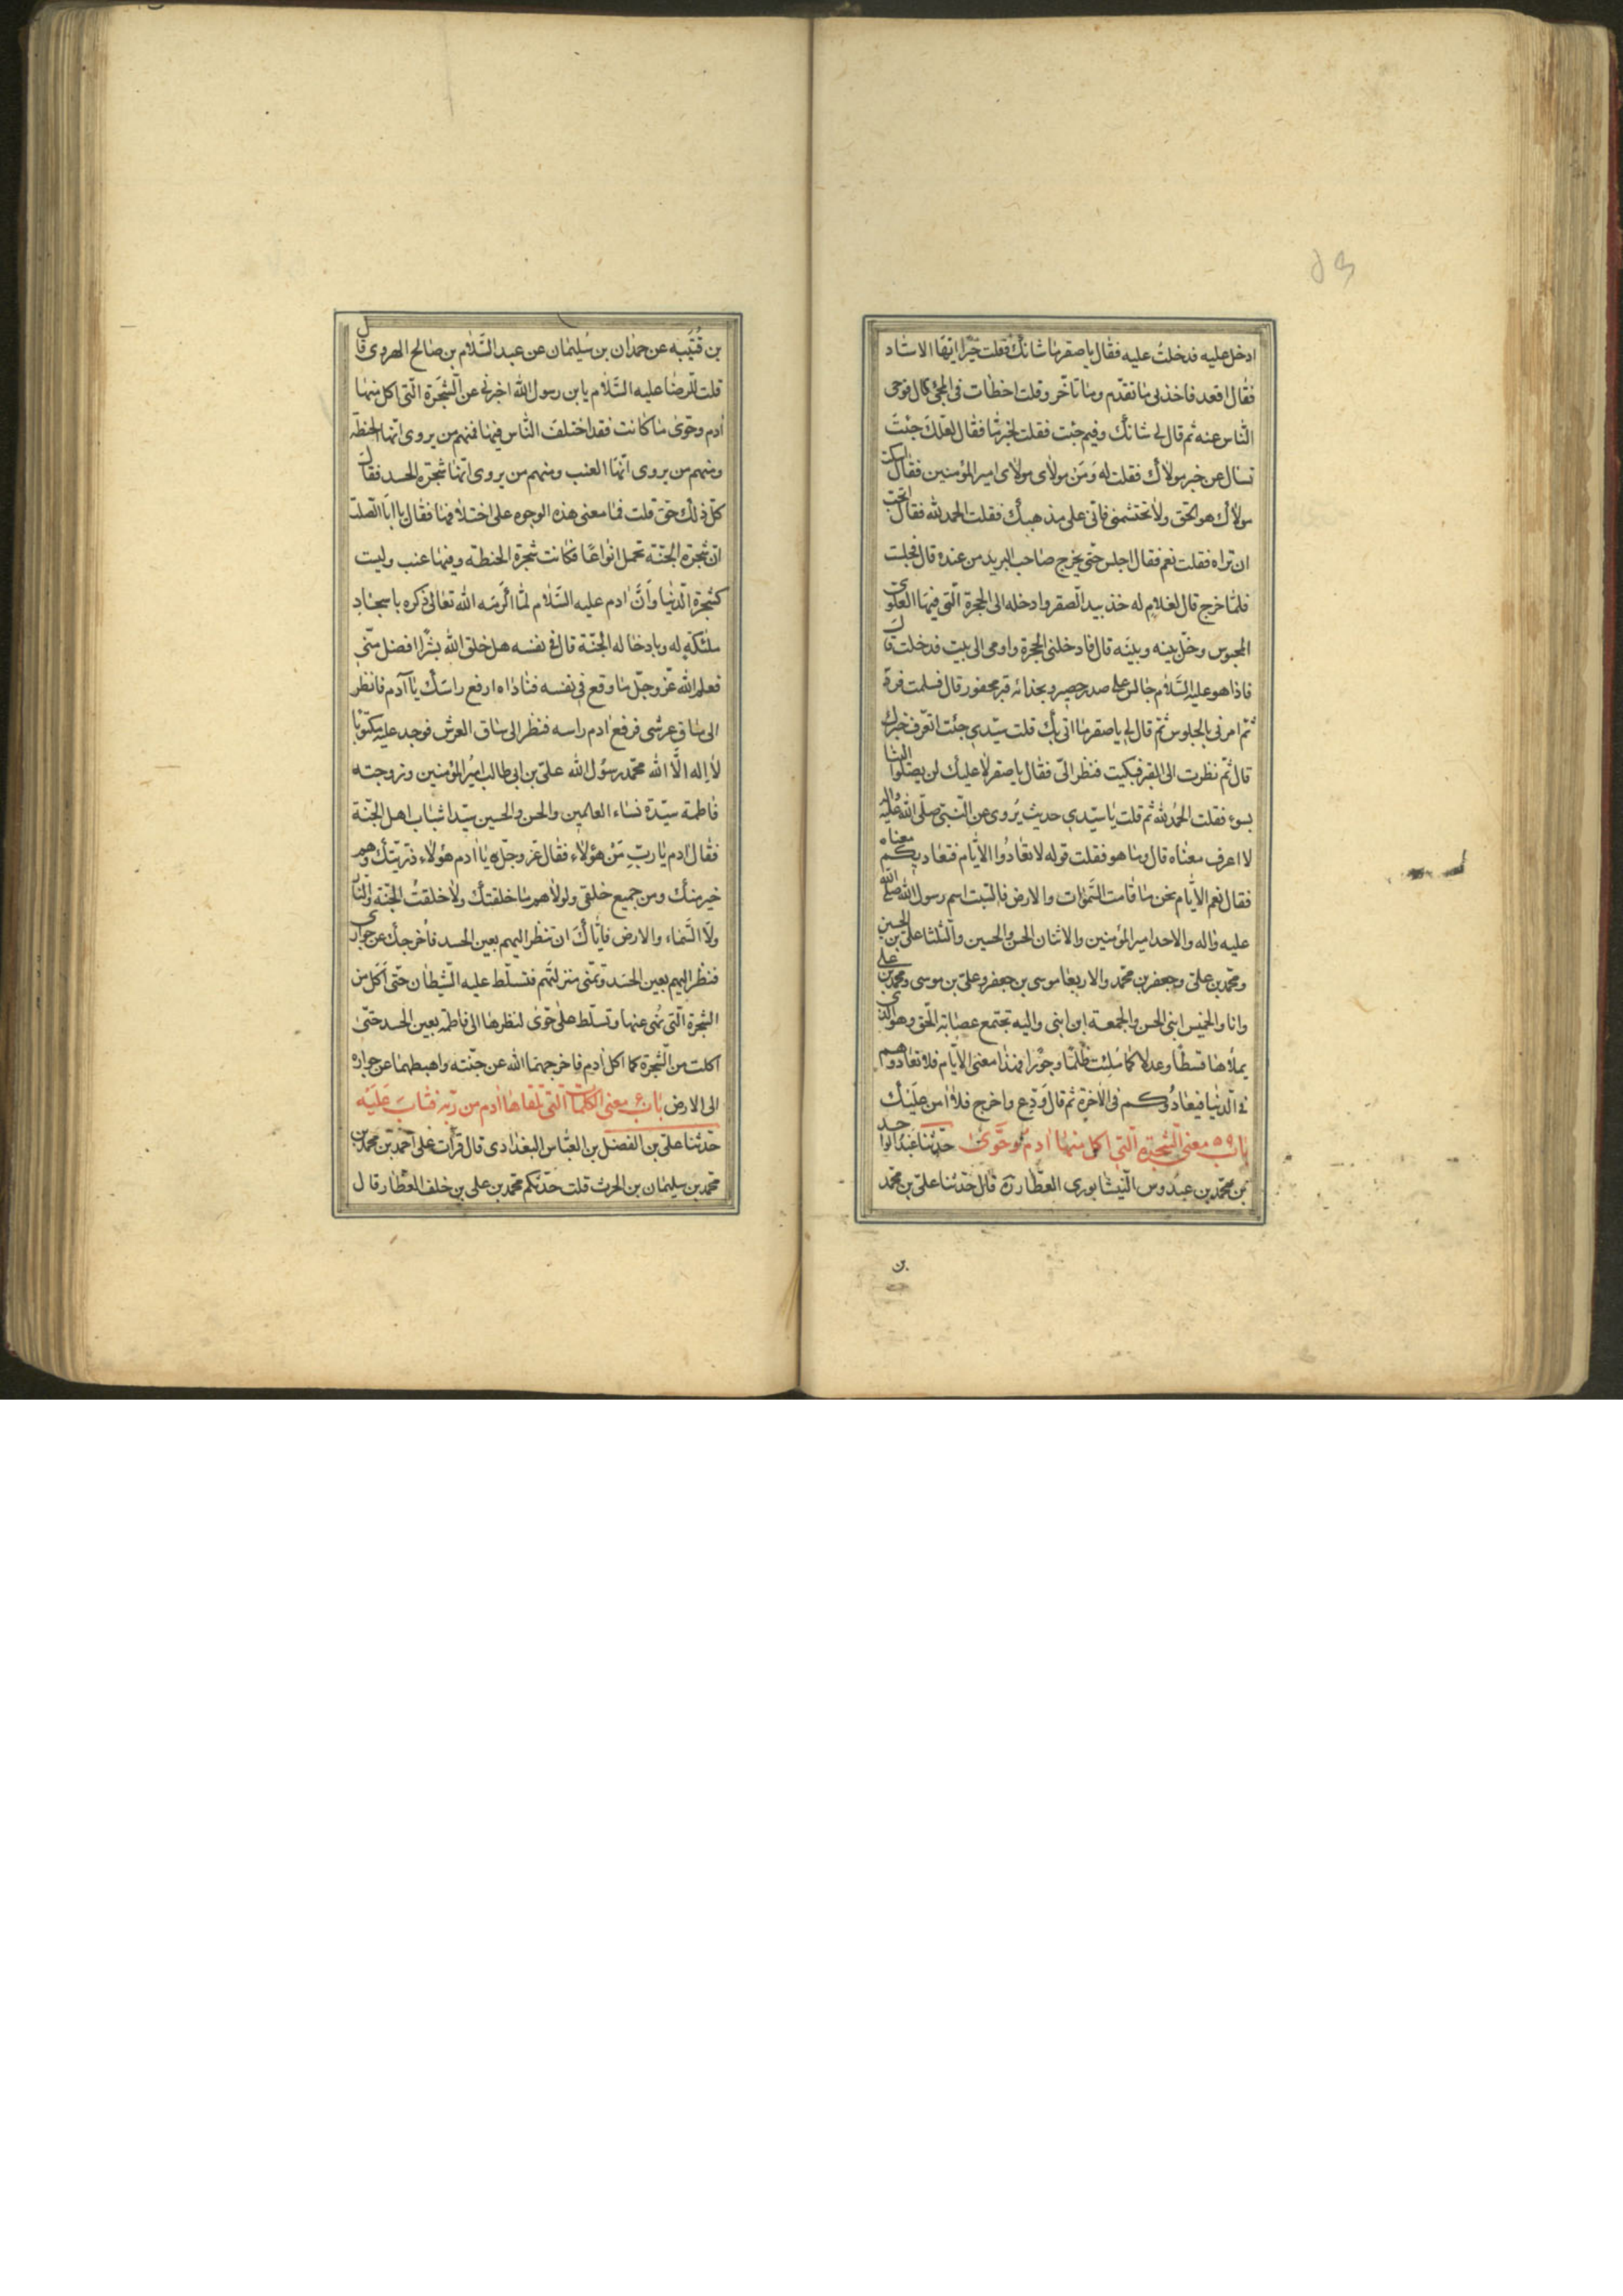 ادخل عليه فدخلت عليه فقال يا صقر ما شانك فقلت خيرا ايها الاستاد
فقال اقعد فاخذنى ما تقدم وما تاخر وقلت اخطات فى المجئ قال فوحى
الناس عنه ثم قال لى شانك وفيم جئت فقلت لخبر ما فقال لعلك جئت
تسال عن خبر مولاك فقلت له ومن مولاى مولاى امير المؤمنين فقال اسكت
مولاك هو الحق ولا تحتشمنى فانى على مذهبك فقلت الحمد لله فقال اتحب
ان تراه فقلت نعم فقال اجلس حتى يخرج صاحب البريد من عنده قال فجلست
فلما خرج قال لغلام له خذ بيد الصقر وادخله الى الحجرة التى فيها العلوى
المحبوس وخل بينه وبينه قال فادخلنى الحجرة واومى الى بيت فدخلت قال
فاذا هو عليه السلام جالس على صدر حصير وبحذائه قبر محفور قال فسلمت فرد
ثم امرنى بالجلوس ثم قال لى يا صقر ما اتى بك قلت سيدى جئت اتعرف خبرك
قال ثم نظرت الى القبر فبكيت فنظر الى فقال يا صقر لا عليك لن يصلوا الينا
بسوء فقلت الحمد لله ثم قلت يا سيدى حديث يروى عن النبى صلى الله عليه واله
لا اعرف معناه قال وما هو فقلت قوله لا تعادوا الايام فتعاديكم معناه
فقال نعم الايام نحن ما قامت السموات والارض فالسبت اسم رسول الله صلى الله
عليه واله والاحد امير المؤمنين والاثنان الحسن والحسين والثلثا على بن الحسين
ومحمد بن على وجعفر بن محمد والاربعا موسى بن جعفر وعلى بن موسى ومحمد بن على
وانا والخميس ابنى الحسن والجمعة ابن ابنى واليه تجتمع عصابة الحق وهو الذى
يملاها قسطا وعدلا كما ملئت ظلما وجورا فهذا معنى الايام فلا تعادوهم
فى الدنيا فيعادوكم فى الاخرة ثم قال ودع واخرج فلا امن عليك
باب ٥٥ معنى الشجرة التى اكل منها ادم وحوى حدثنا عبد الواحد
بن محمد بن عبدوس النيشابورى العطار ره قال حدثنا على بن محمد
بن
بن قتيبه عن حمدان بن سليمان عن عبد السلام بن صالح الهروى قال
قلت للرضا عليه السلام يا بن رسول الله اخبرنى عن الشجرة التى اكل منها
ادم وحوى ما كانت فقد اختلف الناس فيها فمنهم من يروى انها الحنطه
ومنهم من يروى انها العنب ومنهم من يروى انها شجرة الحسد فقال
كل ذلك حق قلت فما معنى هذه الوجوه على اختلافها فقال يا ابا الصلت
ان شجرة الجنة تحمل انواعا فكانت شجرة الحنطة وفيها عنب وليست
كشجرة الدنيا وان ادم عليه السلام لما اكرمه الله تعالى ذكره باسجاد
ملئكته له وبادخاله الجنة قال فى نفسه هل خلق الله بشرا افضل منى
فعلم الله عز وجل ما وقع فى نفسه فناداه ارفع راسك يا آدم فانظر
الى ساق عرشى فرفع ادم راسه فنظر الى ساق العرش فوجد عليه مكتوبا
لا اله الا الله محمد رسول الله على بن ابى طالب امير المؤمنين وزوجته
فاطمة سيدة نساء العالمين والحسن والحسين سيدا شباب اهل الجنة
فقال ادم يا رب من هؤلاء فقال عز وجل يا ادم هؤلاء ذريتك وهم
خير منك ومن جميع خلقى ولولاهم ما خلقتك ولا خلقت الجنة والنار
ولا السماء والارض فاياك ان تنظر اليهم بعين الحسد فاخرجك عن جوارى
فنظر اليهم بعين الحسد وتمنى منزلتهم فتسلط عليه الشيطان حتى اكل من
الشجرة التى نهى عنها وتسلط على حوى لنظرها الى فاطمه بعين الحسد حتى
اكلت من الشجرة كما اكل ادم فاخرجهما الله عن جنته واهبطهما عن جواره
الى الارض باب معنى الكلمات التى تلقاها ادم من ربه فتاب عليه
حدثنا على بن الفضل بن العباس البغدادى قال قرات على احمد بن محمد بن
محمد بن سليمان بن الحرث قلت حدثكم محمد بن على بن خلف العطار قال